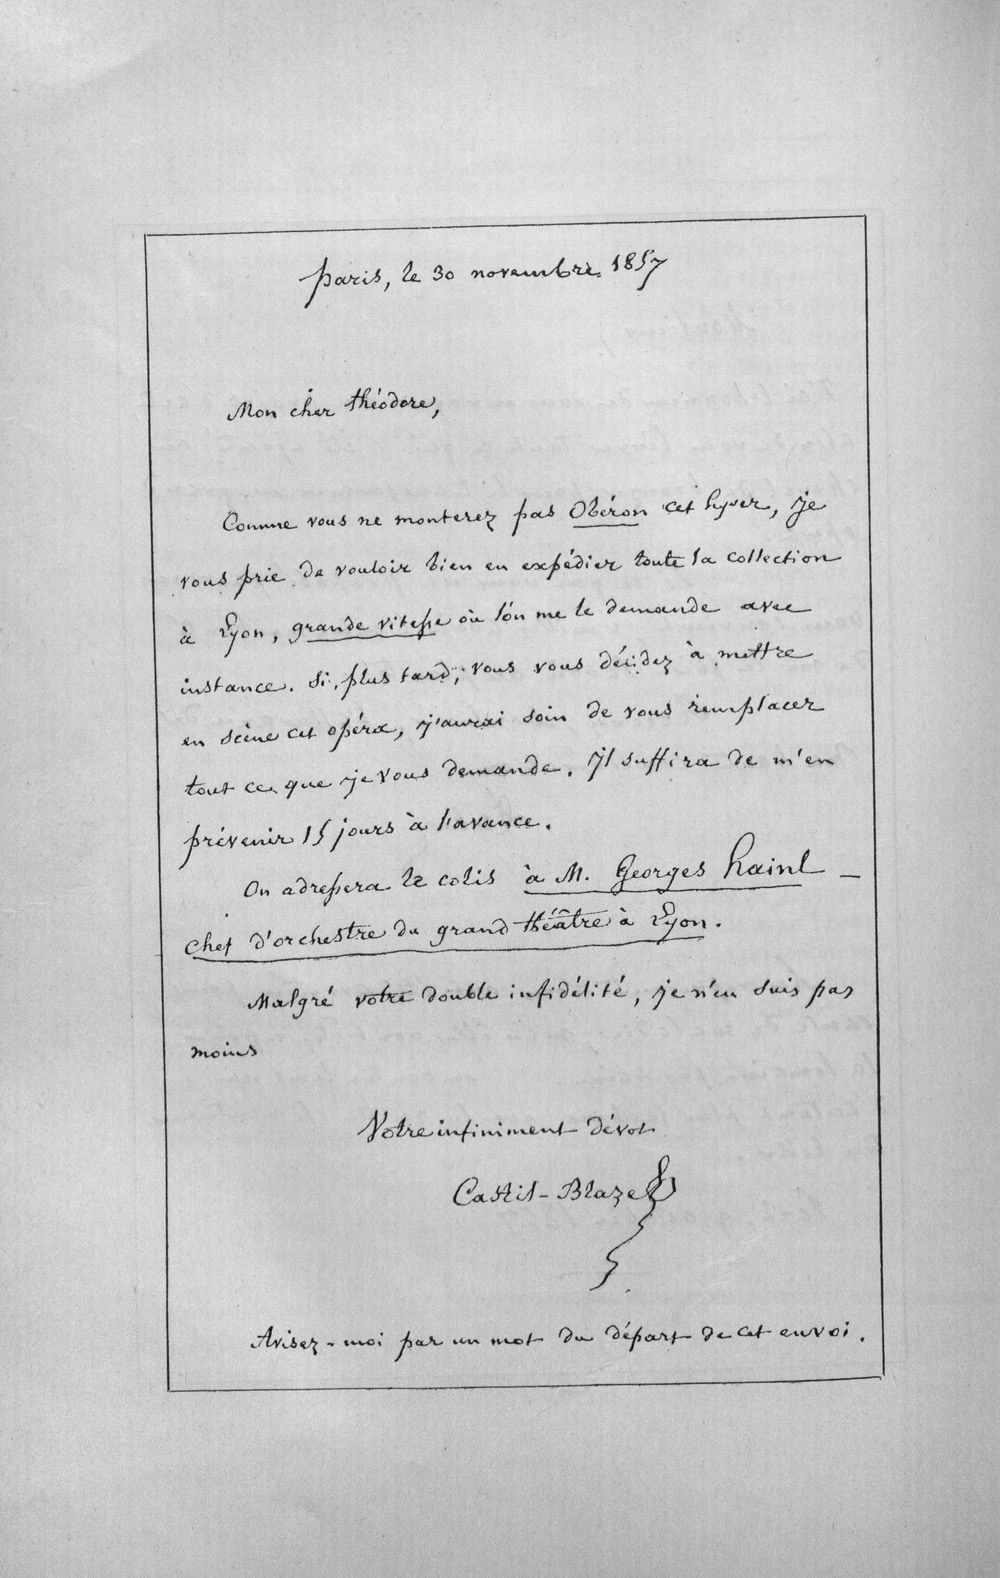 Paris, le 30 novembre 1857
Mon cher théodore,
Comme vous ne monterez pas Obéron cet hyver, je
vous prie de vouloir bien en expédier toute la collection
à Lyon, grande vitesse où l'on me le demande avec
instance. Si, plus tard, vous vous décidez à mettre
en scène cet opéra, j'aurai soin de vous remplacer
tout ce que je vous demande. Il suffira de m'en
prévenir 15 jours à l'avance.
On adressera le colis à M. Georges hainl -
chef d'orchestre du grand théâtre à Lyon.
Malgré votre double infidélité, je n'en suis pas
moins
Votre infiniment dévot
Castil-Blaze
Avisez-moi par un mot du départ de cet envoi.